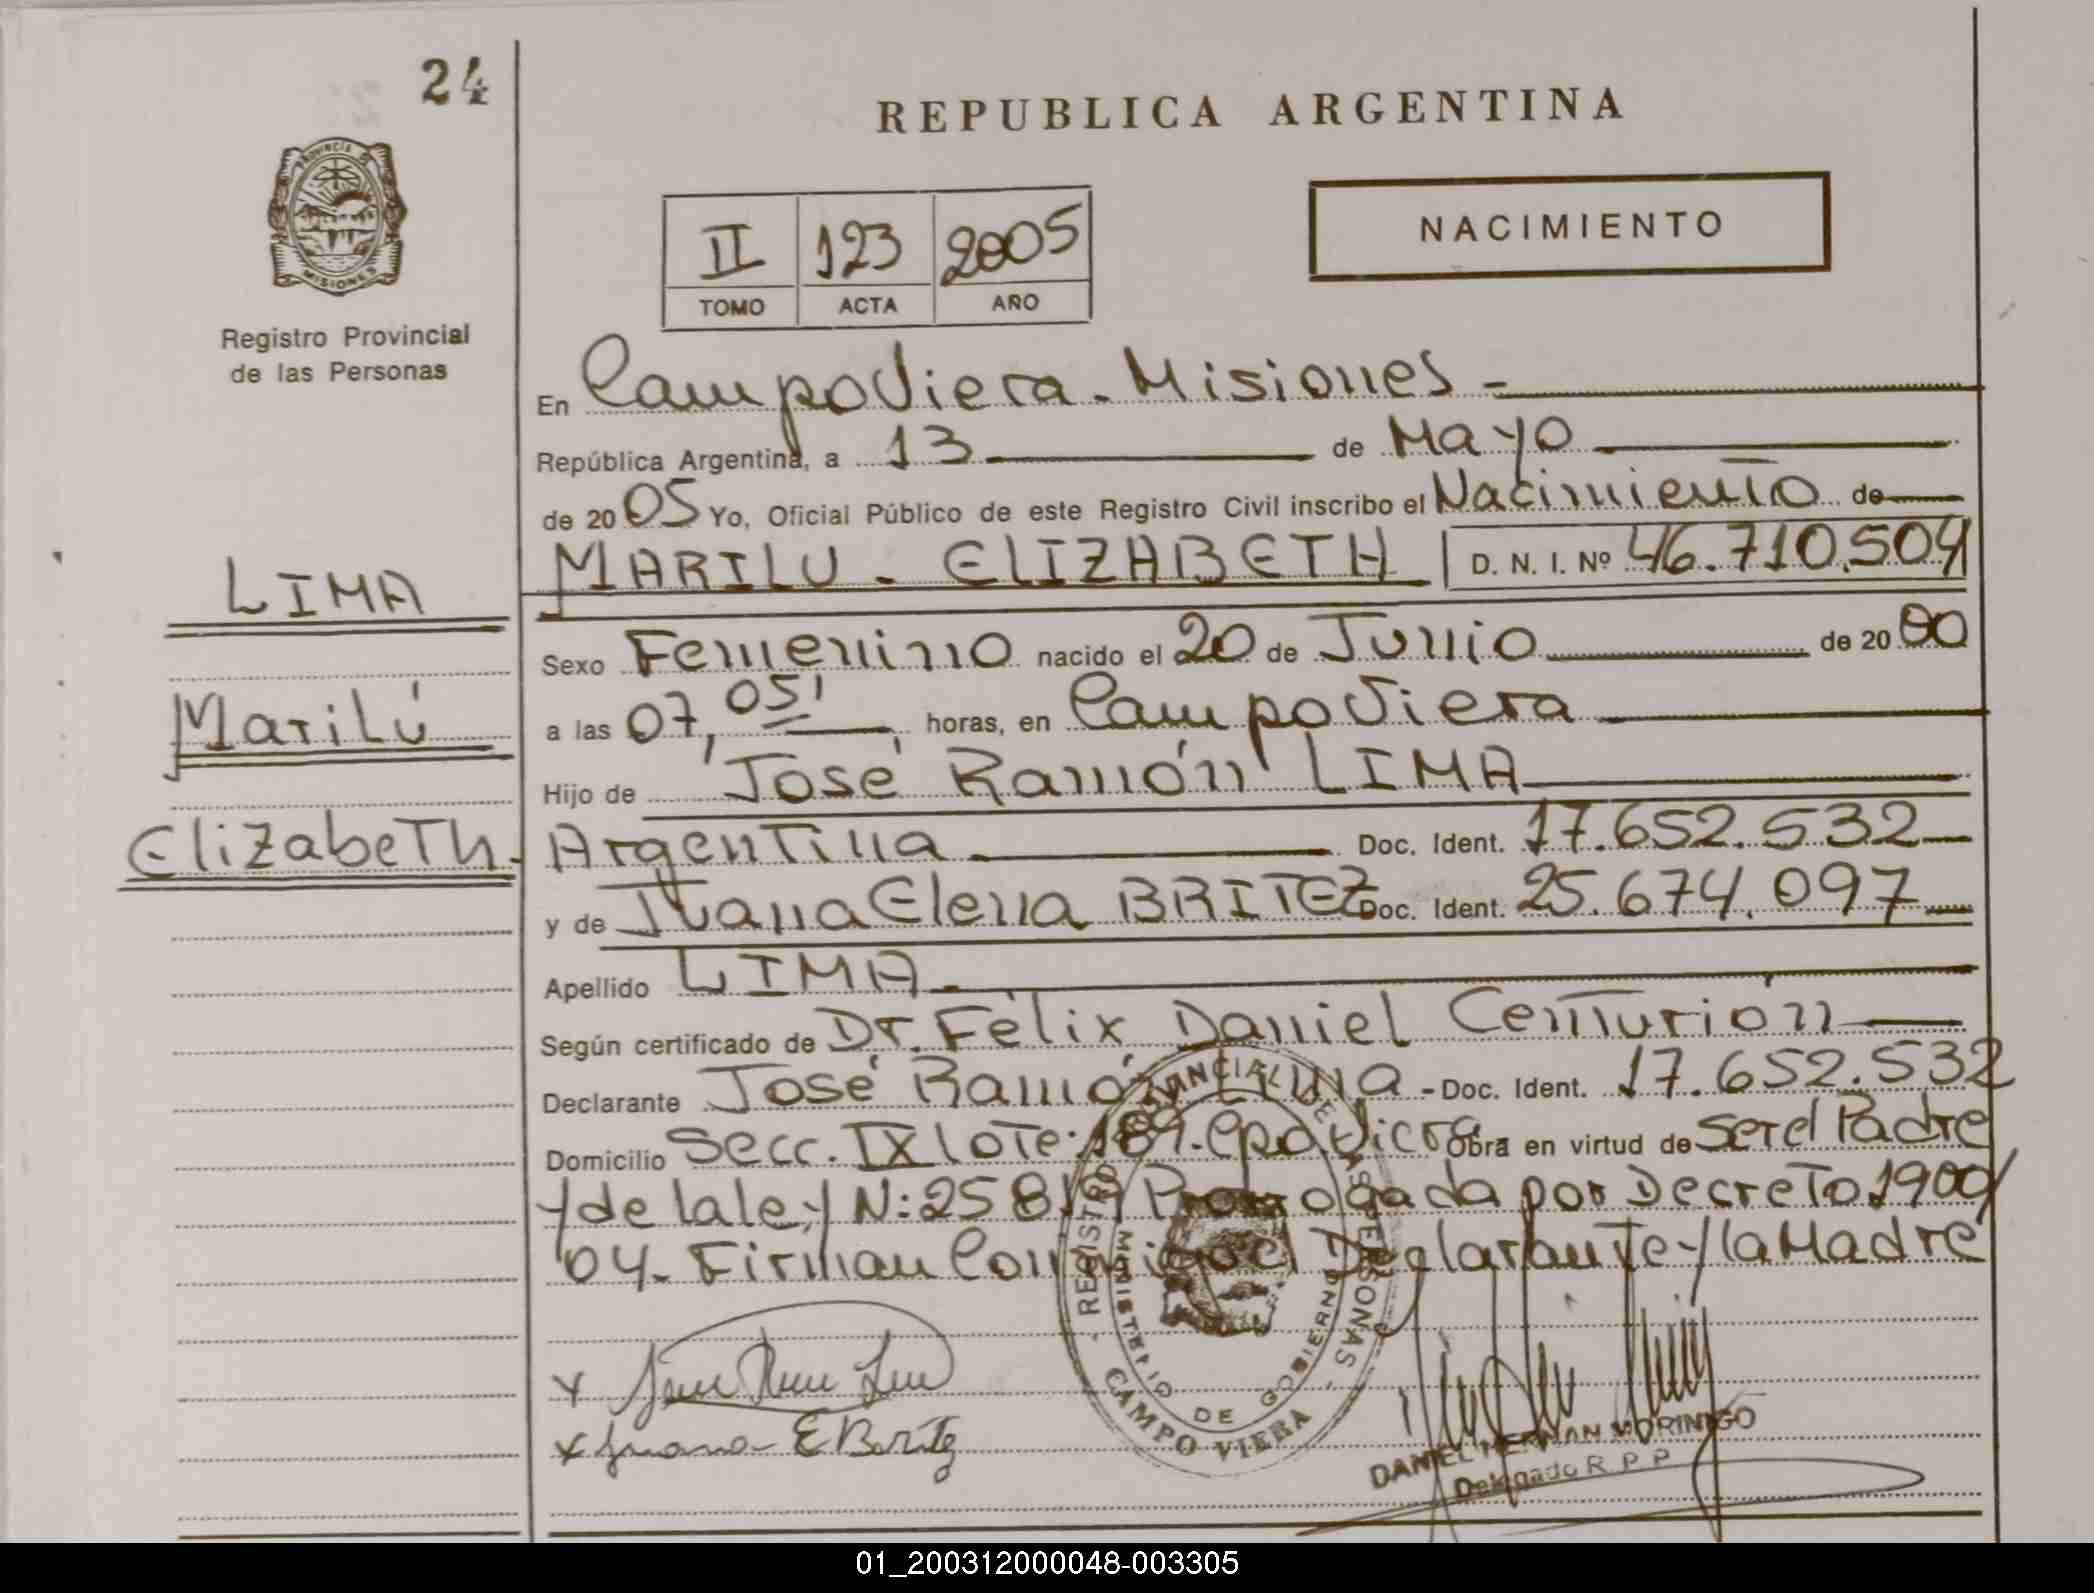 24
REPUBLICA ARGENTINA
PROVINCIA DE
MISIONES
Registro Provincial
de las Personas
II 123 2005
TOMO ACTA AÑO
NACIMIENTO
En Campo Viera - Misiones -
República Argentina, a 13 de Mayo
de 20 05 Yo, Oficial Público de este Registro Civil inscribo el Nacimiento de
MARILU - ELIZABETH D. N. I. Nº 46.710.504
LIMA
Marilú
Elizabeth.
Sexo Femenino nacido el 20 de Junio de 20 00
a las 07, 05' horas, en Campo Viera
Hijo de José Ramón LIMA
Argentina Doc. Ident. 17.652.532
y de Juana Elena BRITEZ Doc. Ident. 25.674.097
Apellido LIMA
Según certificado de Dr. Félix Daniel Centurión
Declarante José Ramón Lima - Doc. Ident. 17.652.532
Domicilio Secc. IX lote: 189. Cpo. Viera Obra en virtud de ser el Padre
y de la ley N: 25819 Prorrogada por Decreto 1900/
04. Firman Conmigo el Declarante y la Madre
REGISTRO PROVINCIAL DE LAS PERSONAS
MINISTERIO DE GOBIERNO
CAMPO VIERA
x
x Juana E Britez
DANIEL HERNAN MORINIGO
Delegado R. P. P.
01_200312000048-003305